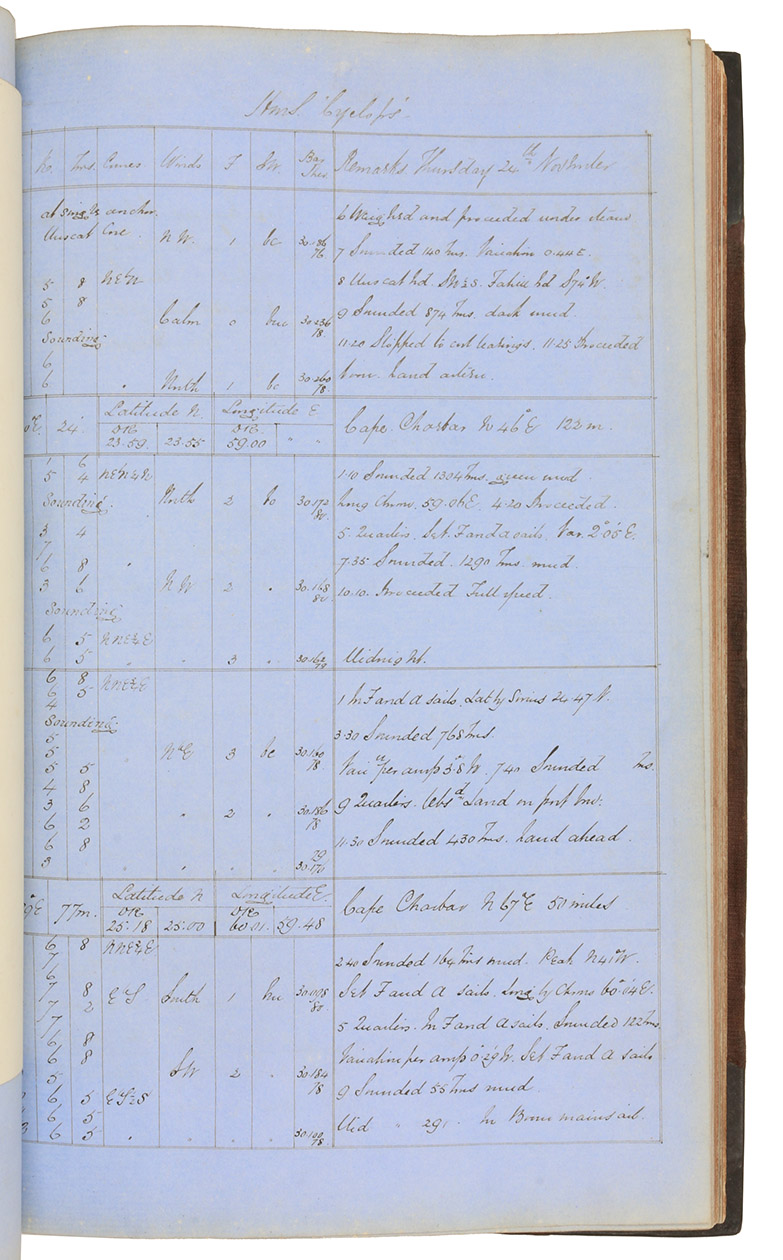 HMS "Cyclops"
Kn. Fms. Curses Winds F Sw. Bar Ther Remarks Thursday 24th November
at single anchor 6 Weighed and proceeded under steam
Muscat Cove. N W. 1 bc 30.186 76
7 Sounded 140 fms. Variation 0.44 E.
5 8 NE½N 8 Muscat hd. Fahil hd S74°W.
5 8
6 Calm 0 30.236 78 9 Sounded 874 fms, dark mud
Sounding 11.20 Stopped to cut bearings. 11.25 Proceeded
6
6 " North 1 bc 30.260 78. Land astern
°E. 24' Latitude N. Longitude E Cape Charbar N 46°E 122 m.
DR DR
23.59. 23.55 59.00 " "
1 6 1.10 Sounded 1304 fms, green mud
5 4 NE½N¼N
Sounding. North 2 bc 30.172 80 Long Chrom. 59.06 E. 4.20 Proceeded.
3 4 5. Quarters. Set F and a sails. Var. 2°05 E.
7
6 8 " 7.35 Sounded. 1290 fms. mud.
3 6 N W 2 " 30.168 80 10.10. Proceeded Full speed.
Sounding
6 5 NNE½E
6 5 " " 3 " 30.162 79 Midnight.
6 8 NNE½E
6 5 1 In F and A sails. Lat by Sirius 24.47 N.
4
Sounding. 3.30 Sounded 768 fms.
5
5 N°E 3 bc 30.160 78. Varitn per amp 3°8 W. 7.40. Sounded fms.
5 5
4 8 9 Quarters. Obsd Land on port bow.
3 6 " 2 " 30.186 78
6 2
6 8 11.30 Sounded 430 fms. Land ahead.
3 " " " 79 30.170
9°E 77m. Latitude N Longitude E. Cape Charbar N 67°E 50 miles
DR DR
25.18 25.00 60.01. 59.48
6 8 NNE½E
7 2.40 Sounded 164 fms mud. Peak N41°W.
6
7 8 E°S South 1 30.098 80. Set F and A sails. Long by Chrno 60°04 E.
7 2
7 5 Quarters. In F and A sails. Sounded 122 fms.
6 8
6 8 Variation per amp 0°29 W. Set F and A sails
5 SW 2 " 30.184 78
6 5 E°S½S 9 Sounded 55 fms mud
6 5
3 6 5 " " " " 30.100 78. Mid " 29, " In Boom mainsail.